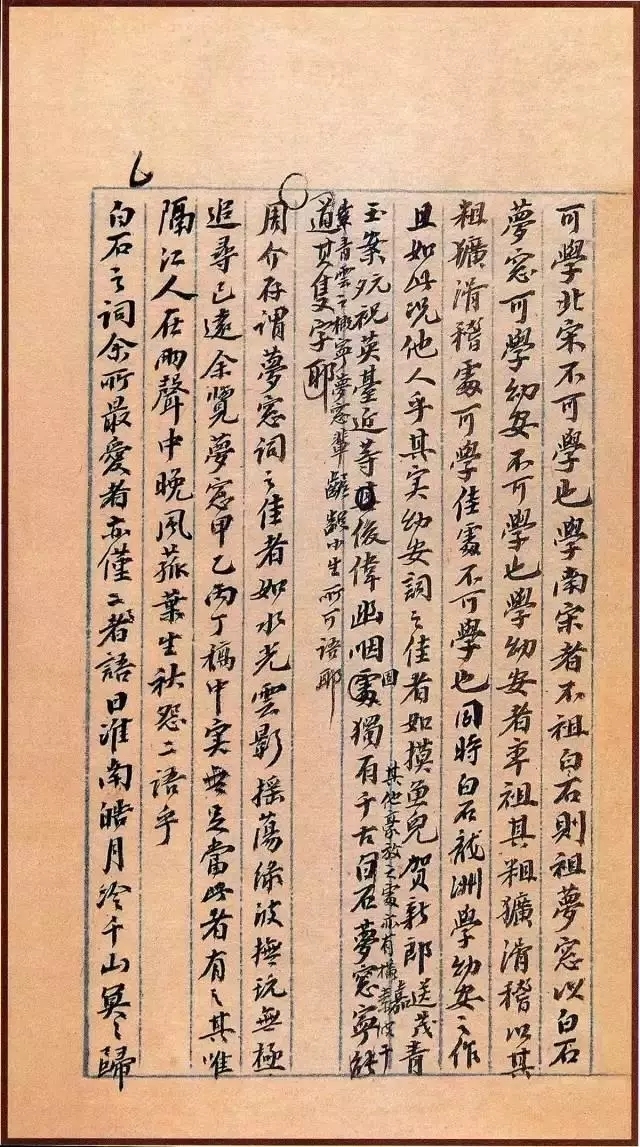 可學北宋不可學也學南宋者不祖白石則祖夢窓以白石
夢窓可學幼安不可學也學幼安者率祖其粗獷滑稽以其
粗獷滑稽處可學佳處不可學也同時白石龍洲學幼安之作
且如此況他人乎其实幼安詞之佳者如摸魚兒賀新郎送茂嘉青
玉案祝英臺近等俊偉幽咽固獨有千古
其他豪放之處亦有橫素波干
青雲之概寧夢窓輩齷齪小生所可語耶
白石夢窓寧能
道其隻字耶
周介存謂夢窓詞之佳者如水光雲影摇蕩綠波撫玩無極
追尋已遠余覽夢窓甲乙丙丁稿中实無足當此者有之其唯
隔江人在雨聲中晚風菰葉生秋怨二語乎
白石之詞余所最愛者亦僅二語曰淮南皓月冷千山冥々歸